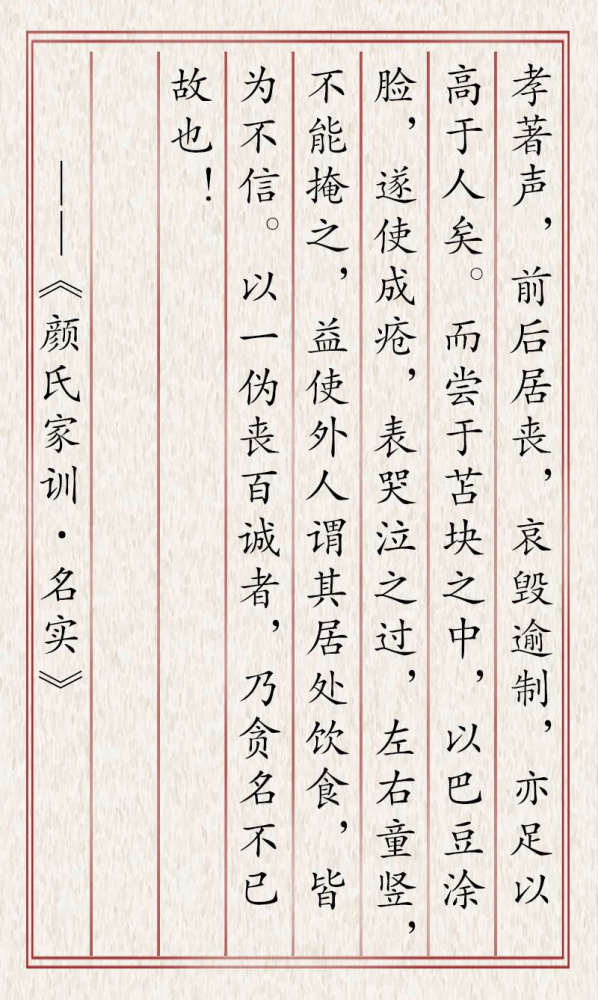 孝著声，前后居丧，哀毁逾制，亦足以
高于人矣。而尝于苫块之中，以巴豆涂
脸，遂使成疮，表哭泣之过，左右童竖，
不能掩之，益使外人谓其居处饮食，皆
为不信。以一伪丧百诚者，乃贪名不已
故也！
——《颜氏家训·名实》